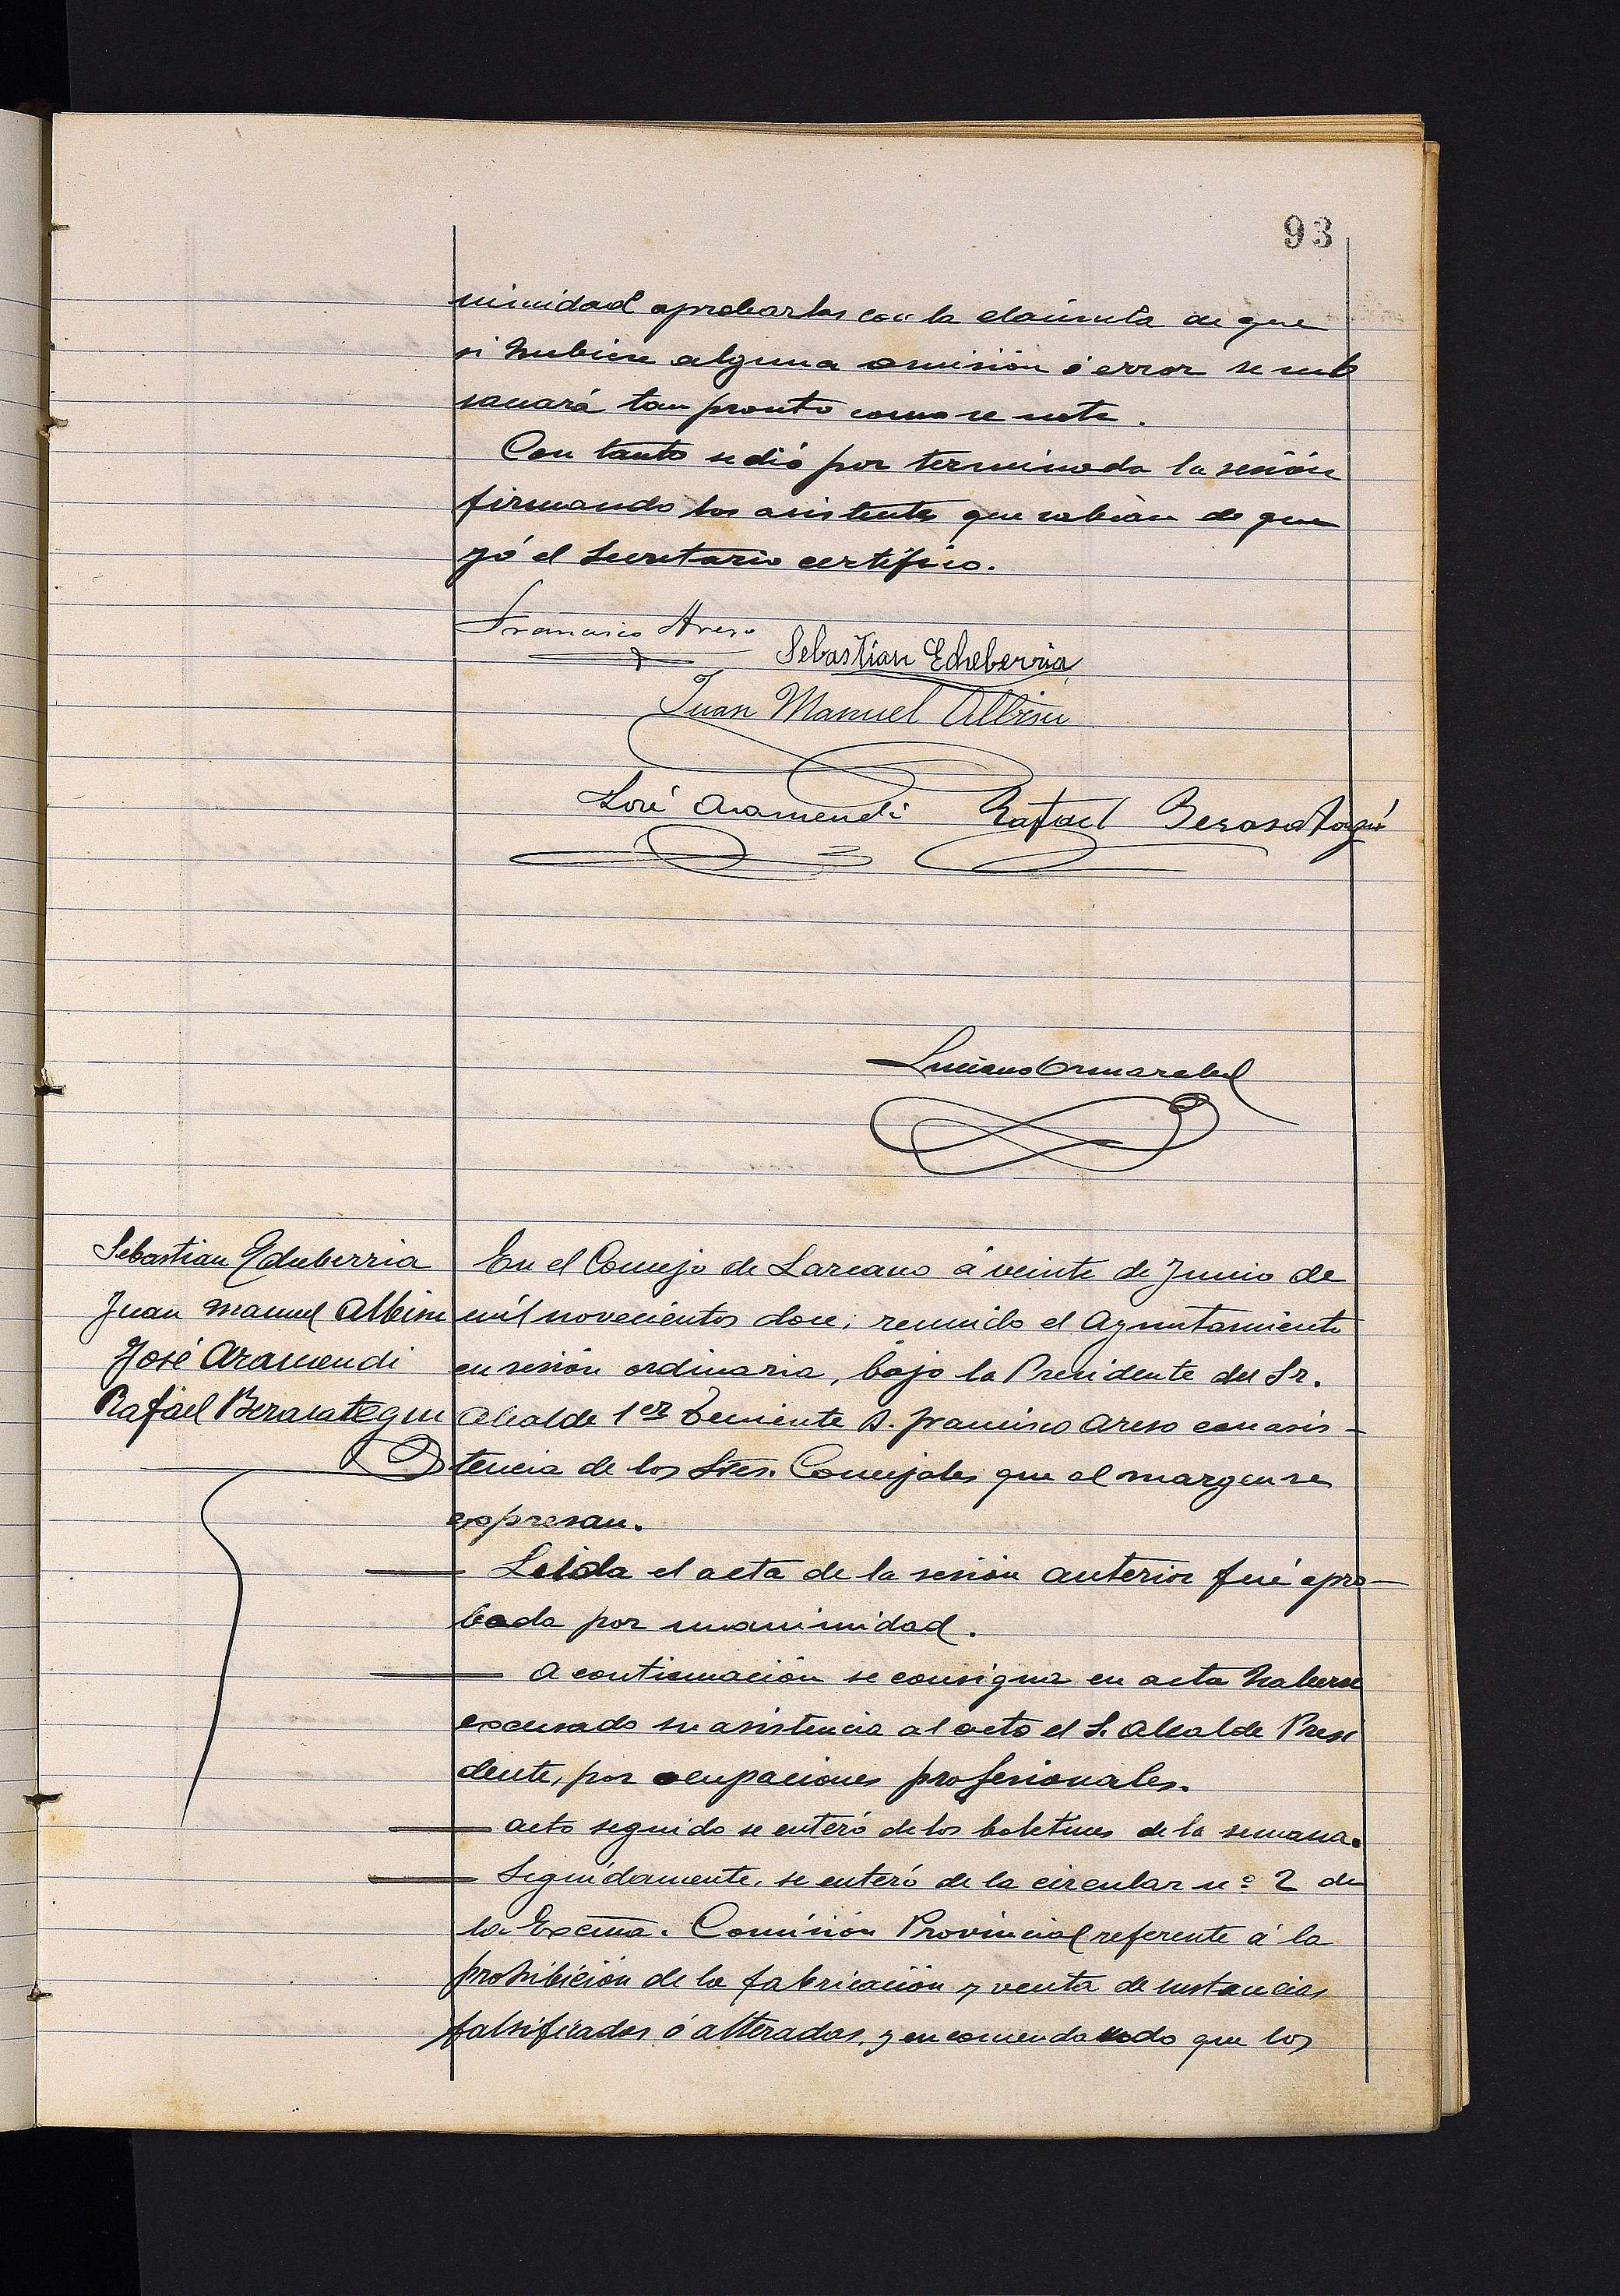 93
nimidad aprobarlas con la cláusula de que
si hubiere alguna omisión ó error se sub
sanará tan pronto como se note.
Con tanto se dió por terminada la sesión
firmando los asistentes que sabian de que
yó el Secretario certifico.
Francisco Areso
Sebastian Echeberria
Juan Manuel Albisu
José Aramendi Rafael Berasategui
Luciano Ormazabal
Sebastian Echeberria
Juan Manuel Albisu
José Aramendi
Rafael Berasategui
En el Concejo de Lazcano á veinte de Junio de
mil novecientos doce; reunido el Ayuntamiento
en sesión ordinaria, bajo la Presidente del Sr.
Alcalde 1er Teniente D. Francisco Areso con asis-
tencia de los Sres. Concejales que al margen se
expresan.
Leida el acta de la sesión anterior fué apro-
bada por unanimidad.
A continuación se consigna en acta haberse
excusado su asistencia al acto el S. Alcalde Presi
dente, por ocupaciones profesionales.
Acto seguido se enteró de los boletines de la semana.
Seguidamente, se enteró de la circular nº 2 de
la Excma. Comisión Provincial referente á la
prohibición de la fabricación y venta de sustancias
falsificadas ó alteradas, y encomendando que los